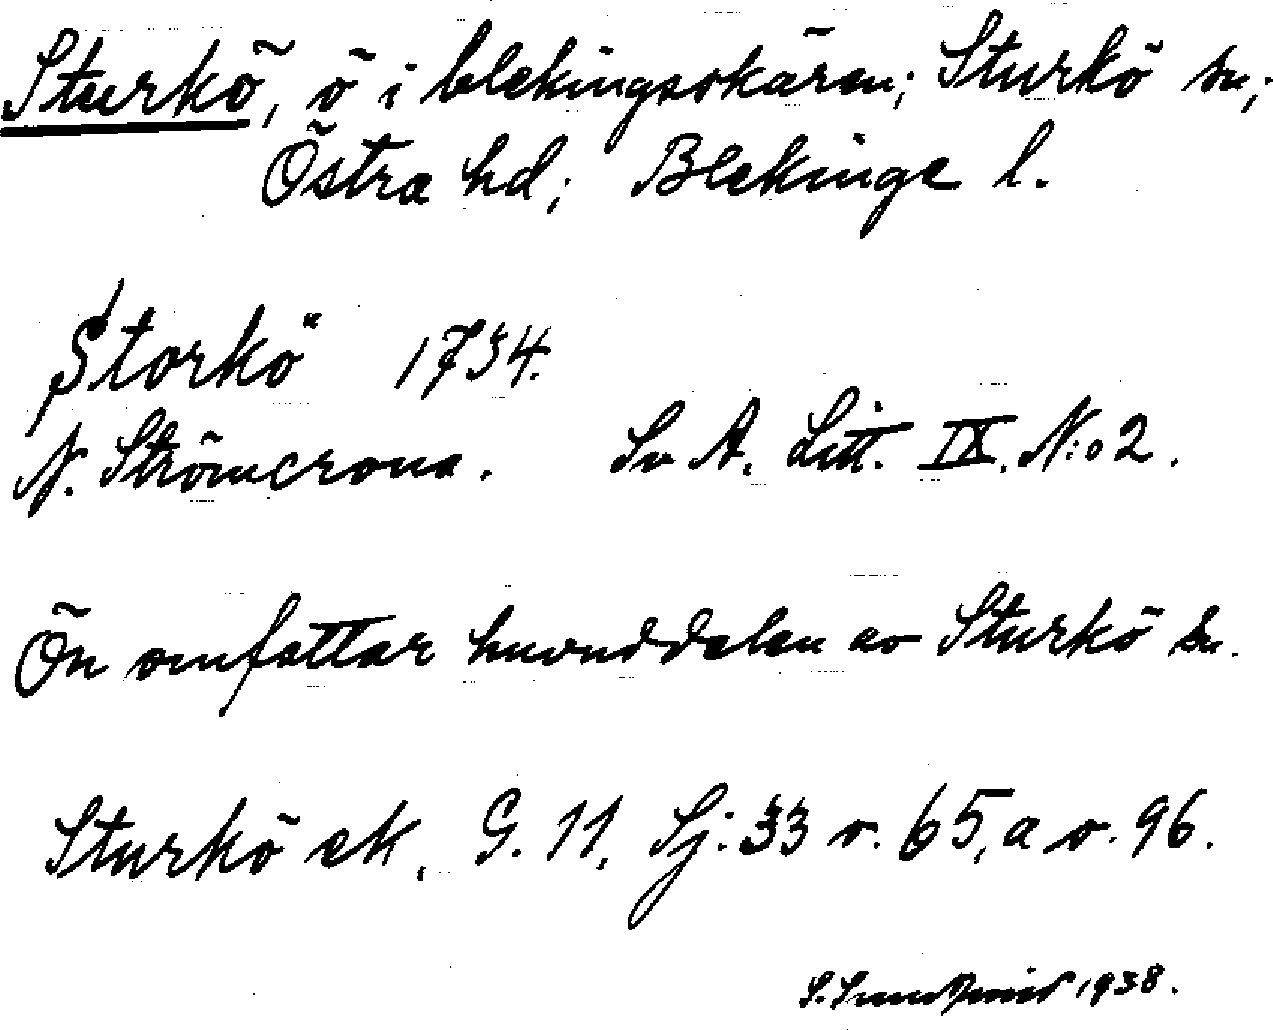 Sturkö, ö i blekingsskären; Sturkö sn;
Östra hd; Blekinge l.
Storkö 1734.
N. Strömcrona. Sv A. Litt. IX. N:o 2.
Ön omfattar huvuddelen av Sturkö sn.
Sturkö ek. G. 11. Sj: 33 v. 65, a v. 96.
S. 1938.